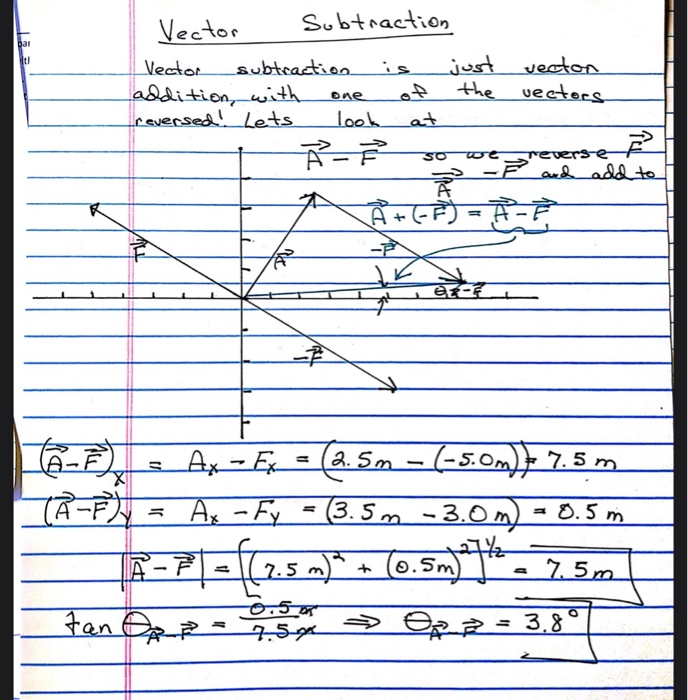 Vector Subtraction
par
Vector subtraction is just vector
addition, with one of the vectors
reversed! Lets look at
A⃗ - F⃗ so we reverse F⃗
-F⃗ and add to
A⃗
A⃗ + (-F⃗) = A⃗ - F⃗
F⃗
A⃗
-F⃗
θ A⃗-F⃗
-F⃗
(A⃗-F⃗)x = Ax - Fx = (2.5m - (-5.0m)) = 7.5m
(A⃗-F⃗)y = Ax - Fy = (3.5m - 3.0m) = 0.5m
|A⃗ - F⃗| = [(7.5 m)² + (0.5m)²]^1/2 = 7.5m
tan θ A⃗-F⃗ = 0.5 m / 7.5 m ⇒ θ A⃗-F⃗ = 3.8°